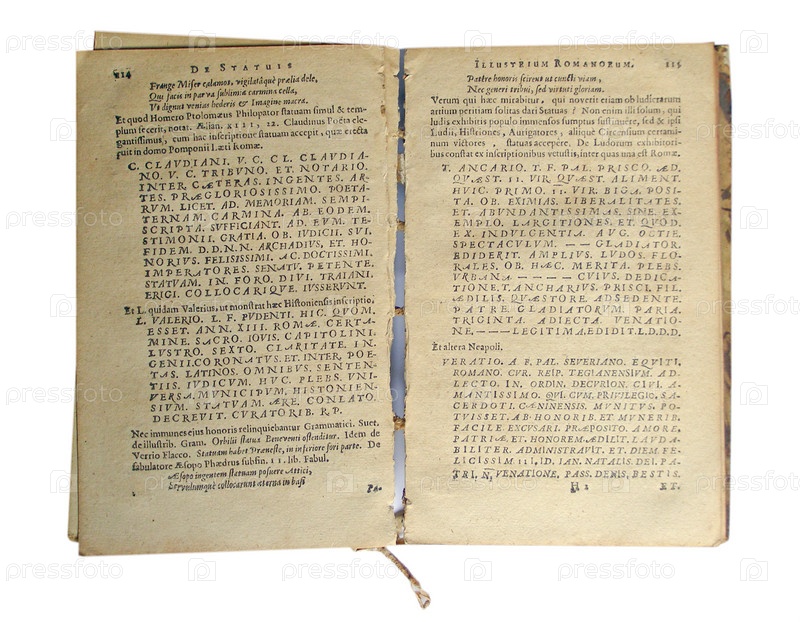 214 DE STATUIS
Frange Miser calamos, vigilatáque prælia dele,
Qui facis in parva sublimia carmina cella,
Vt dignus venias hederis & Imagine macra.
Et quod Homero Ptolomæus Philopator statuam simul & tem-
plum fecerit, notat Ælian. XIII, 22. Claudinus Poëta ele-
gantissimus, cum hac inscriptione statuam accepit, quæ erecta
fuit in domo Pomponii Læti Romæ.
C. CLAVDIANI. V. C. CL. CLAVDIA-
NO. V. C. TRIBVNO. ET. NOTARIO.
INTER. CÆTERAS. INGENTES. AR-
TES. PRÆGLORIOSISSIMO. POETA-
RVM. LICET. AD. MEMORIAM. SEMPI-
TERNAM. CARMINA. AB. EODEM.
SCRIPTA. SUFFICIANT. AD. EVM. TE-
STIMONII. GRATIA. OB. IVDICII. SVI.
FIDEM. D.D.N.N. ARCHADIVS. ET. HO-
NORIVS. FELISISSIMI. AC. DOCTISSIMI.
IMPERATORES. SENATV. PETENTE.
STATVAM. IN. FORO. DIVI. TRAIANI.
ERIGI. COLLOCARIQVE. IVSSERVNT.
Et L. quidam Valerius, ut monstrat hæc Histoniensis inscriptio.
L. VALERIO. L. F. PVDENTI. HIC. QVOM.
ESSET. ANN. XIII. ROMÆ. CERTA-
MINE. SACRO. IOVIS. CAPITOLINI.
LVSTRO. SEXTO. CLARITATE. IN-
GENII. CORONATVS. ET. INTER. POE-
TAS. LATINOS. OMNIBVS. SENTEN-
TIIS. IVDICVM. HVC. PLEBS. VNI-
VERSA. MVNICIPVM. HISTONIEN-
SIVM. STATVAM. ÆRE. CONLATO.
DECREVIT. CVRATORIB. R.P.
Nec immunes eius honoris relinquiebantur Grammatici. Suet.
de illustrib. Gram. Orbilii status Beneventi ostenditur. Idem de
Verrio Flacco. Statuam habet Præneste, in inferiore fori parte. De
fabulatore Æsopo Phædrus subfin. 11. lib. Fabul.
Æsopo ingentem statuam posuere Attici,
Servulumque collocarunt æterna in basi
Pa-
ILLUSTRIUM ROMANORUM. 115
Patére honoris scirent ut cuncti viam,
Nec generi tribui, sed virtuti gloriam.
Verum qui hæc mirabitur, qui noverit etiam ob ludicrarum
artium peritiam solitas dari Statuas? Non enim illi solum, qui
ludis exhibitis populo immensos sumptus sustinuere, sed & ipsi
Ludii, Histriones, Aurigatores, aliique Circensium certami-
num victores, statuas accepere. De Ludorum exhibitori-
bus constat ex inscriptionibus vetustis, inter quas una est Romæ.
T. ANCARIO. T. F. PAL. PRISCO. ÆD.
QUÆST. II. VIR. QVÆST. ALIMENT.
HVIC. PRIMO. II. VIR. BIGA. POSI-
TA. OB. EXIMIAS. LIBERALITATES.
ET. ABVNDANTISSIMAS. SINE. EX-
EMPLO. LARGITIONES. ET. QVOD.
EX. INDVLCENTIA. AVG. OSTIE.
SPECTACVLVM. — — GLADIATOR.
EDIDERIT. AMPLIVS. LVDOS. FLO-
RALES. OB. HÆC. MERITA. PLEBS.
VRBANA. — — — CIVIS. DEDICA-
TIONE. T. ANCHARIVS. PRISCI. FIL.
ÆDILIS. QVÆSTORE. ADSEDENTE.
PATRE. GLADIATORVM. PARIA.
TRIGINTA. ADIECTA. VENATIO-
NE. — — — LEGITIMA. EDIDIT. L.D.D.D.
Et altera Neapoli.
VERATIO. A. F. PAL. SEVERIANO. EQVITI.
ROMANO. CVR. REIP. TEGIANENSIVM. AD-
LECTO. IN. ORDIN. DECVRION. CIVI. A-
MANTISSIMO. QVI. CVM. PRIVILEGIO. SA-
CERDOTI. CÆNINENSIS. MVNITVS. PO-
TVISSET. AB. HONORIB. ET. MVNERIB.
FACILE. EXCVSARI. PRÆPOSITO. AMORE.
PATRIÆ. ET. HONOREM. ÆDILIT. LAVDA-
BILITER. ADMINISTRAVIT. ET. DIEM. FE-
LICISSIM. III. ID. IAN. NATALIS. DEI. PA-
TRI. N. VENATIONE. PASS. DENIS. BESTIS.
H 2 ET.